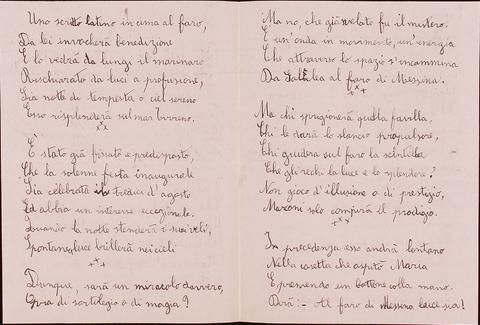 Uno scritto latino in cima al faro,
Da lei invocherà benedizione
E lo vedrà da lungi il marinaro
Rischiarato da luci a profusione,
Sia notte di tempesta o ciel sereno
Esso risplenderà sul mar Tirreno.
xxx
E' stato già fissato e predisposto,
Che la solenne festa inaugurale
Sia celebrata il tredici d'agosto
Ed abbia un interesse eccezionale.
Quando la notte stenderà i suoi veli,
Spontanea luce brillerà nei cieli
xxx
Dunque, sarà un miracolo davvero,
Opra di sortilegio o di magia?
Ma no, che già svelato fu il mistero.
E' un'onda in movimento, un'energia
Che attraverso lo spazio s'incammina
Da Galilea al faro di Messina.
xxx
Ma chi sprigionerà quella favilla,
Chi le darà lo slancio propulsore,
Chi guiderà sul faro la scintilla
Che gli rechi la luce e lo splendore?
Non gioco d'illusione o di prestigio,
Marconi solo compirà il prodigio.
xxx
In precedenza esso andrà lontano
Nella casetta che ospitò Maria
E premendo un bottone colla mano.
Dirà: - Al faro di Messina luce sia!